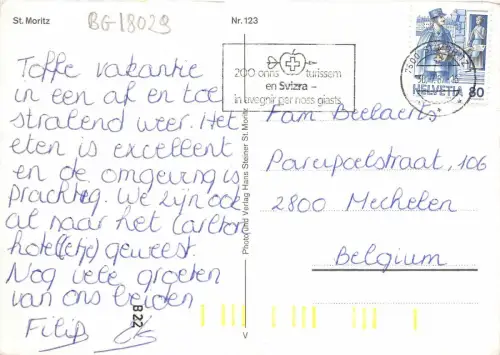 St. Moritz
BG-18029
Nr. 123
Toffe vakantie
in een af en toe
stralend weer. Het
eten is excellent
en de omgeving is
prachtig. We zijn ook
al naar het Carlton
hotel(etje) geweest.
Nog vele groeten
van ons beiden
Filip
B 22
Photo und Verlag Hans Steiner St. Moritz
V
200 onns turissem
en Svizra -
in avegnir per noss giasts
HELVETIA 80
Fam Beelaerts
Parijpelstraat, 106
2800 Mechelen
Belgium